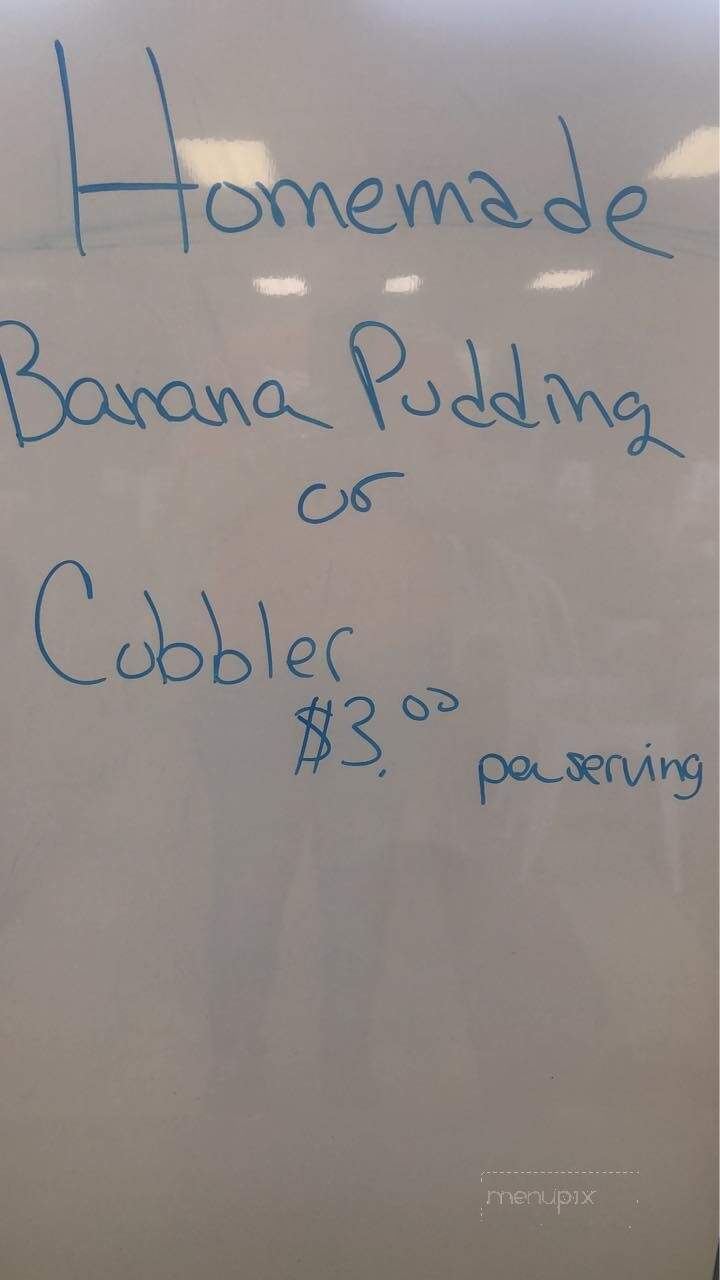 Homemade
Banana Pudding
or
Cobbler
$3.00 per serving
menupix